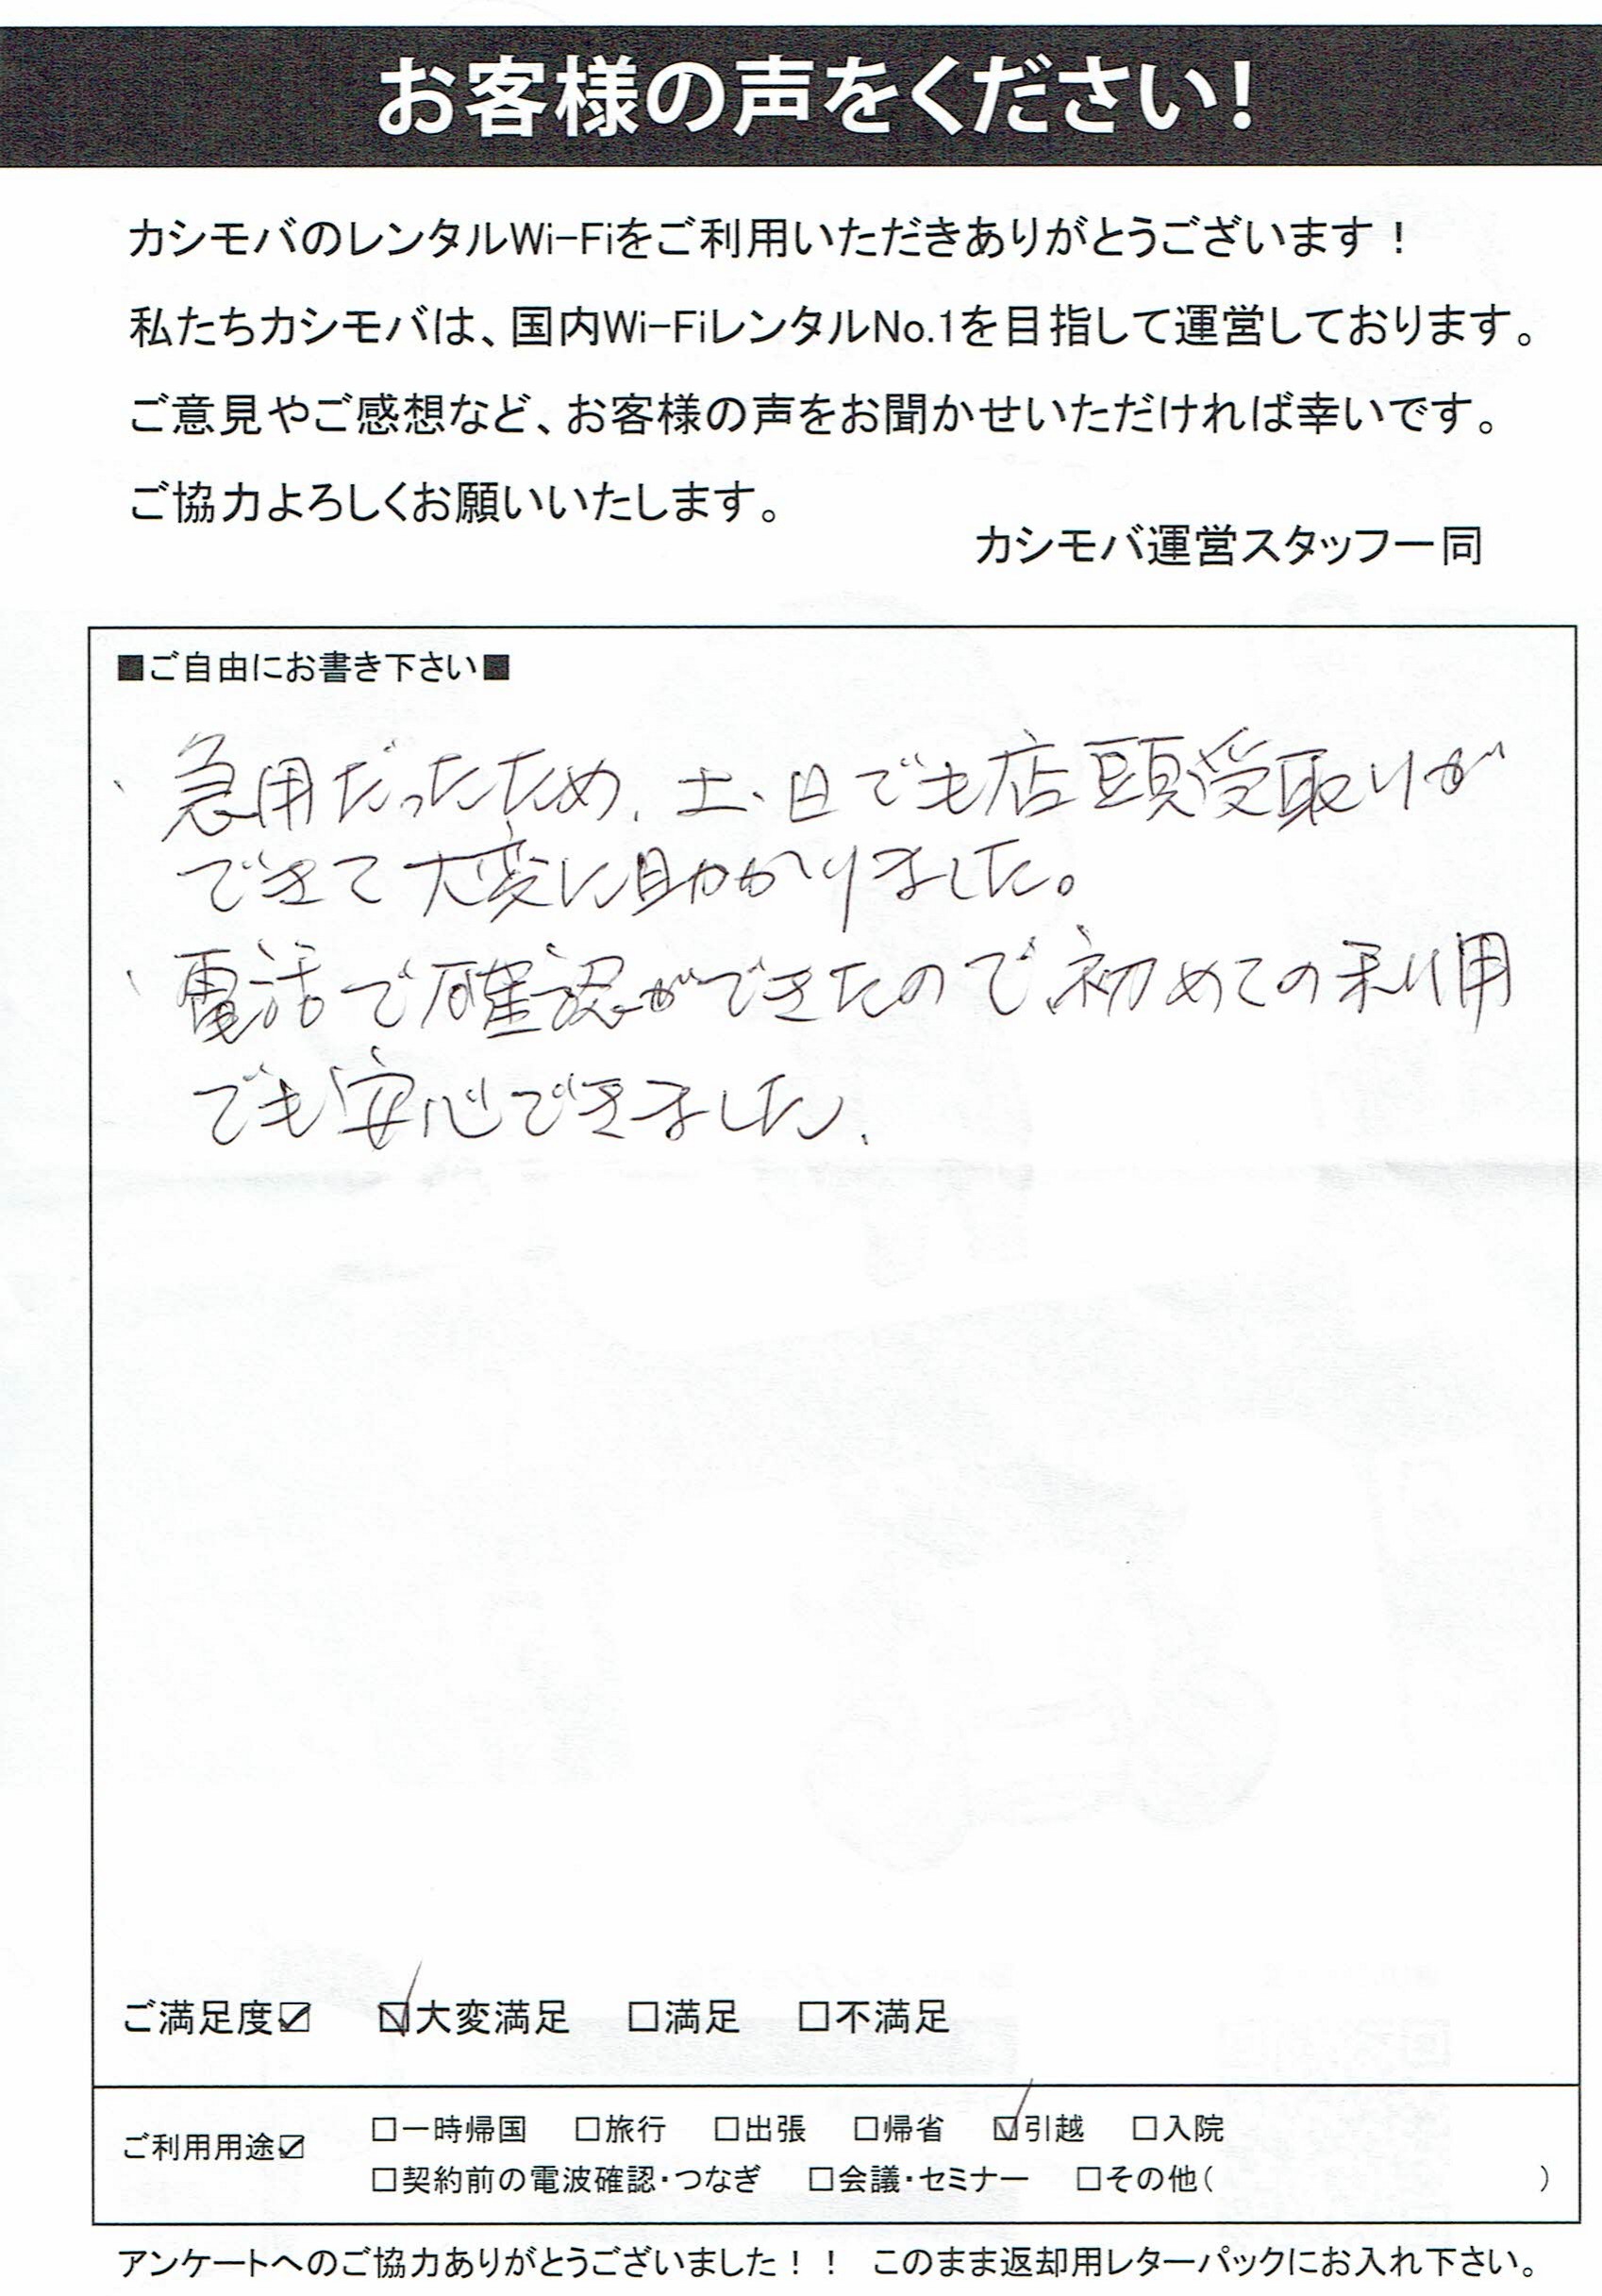 お客様の声をください!
カシモバのレンタルWi-Fiをご利用いただきありがとうございます！
私たちカシモバは、国内Wi-FiレンタルNo.1を目指して運営しております。
ご意見やご感想など、お客様の声をお聞かせいただければ幸いです。
ご協力よろしくお願いいたします。
カシモバ運営スタッフ一同
■ご自由にお書き下さい■
、急用だったため、土、日でも店頭受取りが
できて大変に助かりました。
、電話で確認ができたので、初めての利用
でも安心できました、
ご満足度☑ ☑大変満足 □満足 □不満足
□一時帰国 □旅行 □出張 □帰省 ☑引越 □入院
ご利用用途☑
□契約前の電波確認・つなぎ □会議・セミナー □その他( )
アンケートへのご協力ありがとうございました！！ このまま返却用レターパックにお入れ下さい。